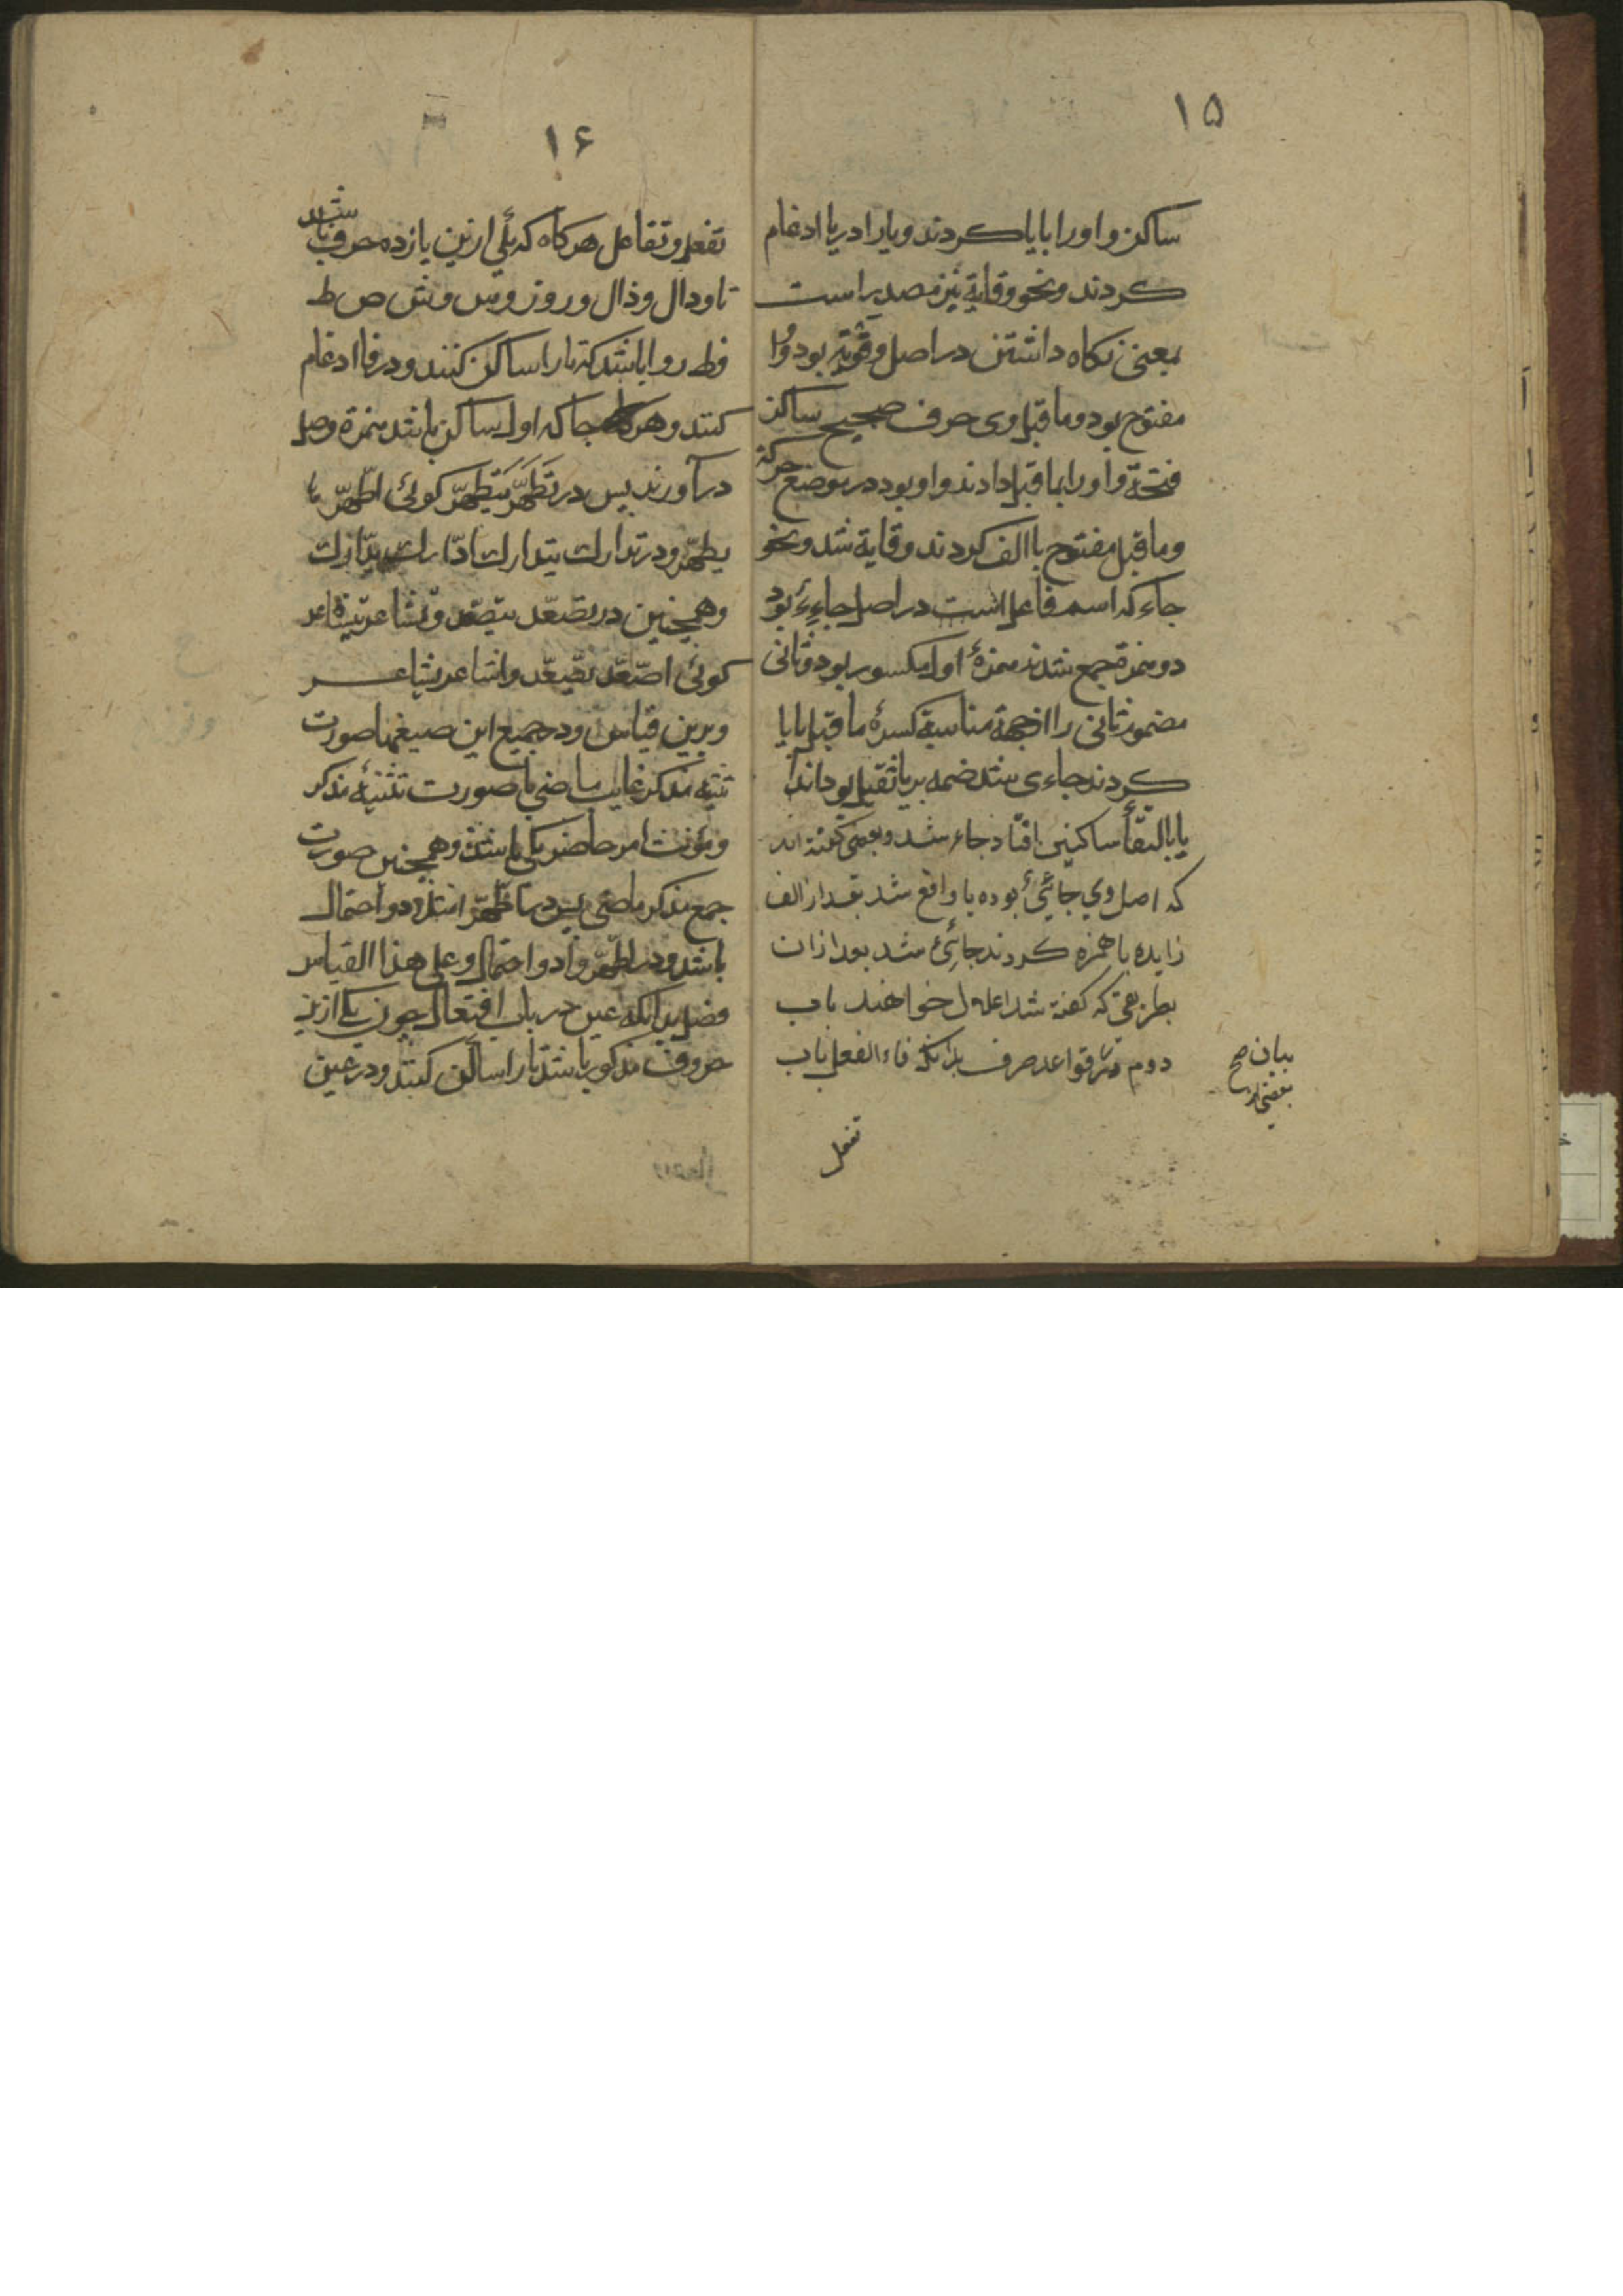 ۱۵
ساکن واو را با یا کردند و یا را در یا ادغام
کردند و نحو وقایة نیز مصدر است
بمعنی نکاه داشتن در اصل وقویة بود واو
مفتوح بود و ما قبل وی حرف صحیح ساکن
فتحۀ واو را بما قبل دادند واو بود در موضع حرکة
و ما قبل مفتوح با الف کردند وقایة شد و نحو
جاء که اسم فاعل است در اصل جاءِءٌ بود
دو همزة جمع شدند همزۀ اول مکسور بود و ثانی
مضموم ثانی را از جهة مناسبة کسرۀ ما قبل با یا
کردند جاءی شد ضمه بر یا ثقیل بود انداختند
یا بالتقاء ساکنین افتاد جاء شد و بعضی کفته اند
که اصل وی جایئ بوده یا واقع شد بعد از الف
زایده با همزه کردند جائئ شد بعد از ان
بطریقی که کفته شد اعلال خواهند باب
دوم در قواعد صرف بدانکه فاء الفعل باب
بیان صح
بعضی از
تفعل
۱۶
تفعل و تفاعل هر کاه که یکی ازین یازده حرف باشد
تا و دال و ذال و ر و ز و س و ش ص ط
و ظ روا باشد که تا را ساکن کنند و در فا ادغام
کنند و هر جا که اول ساکن باشد همزة وصل
در آورند پس در تَطَهَّرَ یَتَطَهَّرُ کوئی اطّهّر یا
یطّهّر و در تدارك یتدارك ادّارك یدّارك
و همچنین در تصعّد یتصعّد و تشاعر یتشاعر
کوئی اصّعّد یصّعّد و اشّاعر یشّاعر
و برین قیاس و در جمیع این صیغها صورت
تثنیه مذکر غایب ماضی با صورت تثنیۀ مذکر
و مؤنث امر حاضر یکی باشد و همچنین صورت
جمع مذکر ماضی پس در اطّهّرا مثلا دو احتمال
باشد و در اطّهّروا دو احتمال و علی هذا القیاس
فصل بدانکه عین در باب افتعال چون یکی ازین
حروف مذکور باشد تا را ساکن کنند و در عین